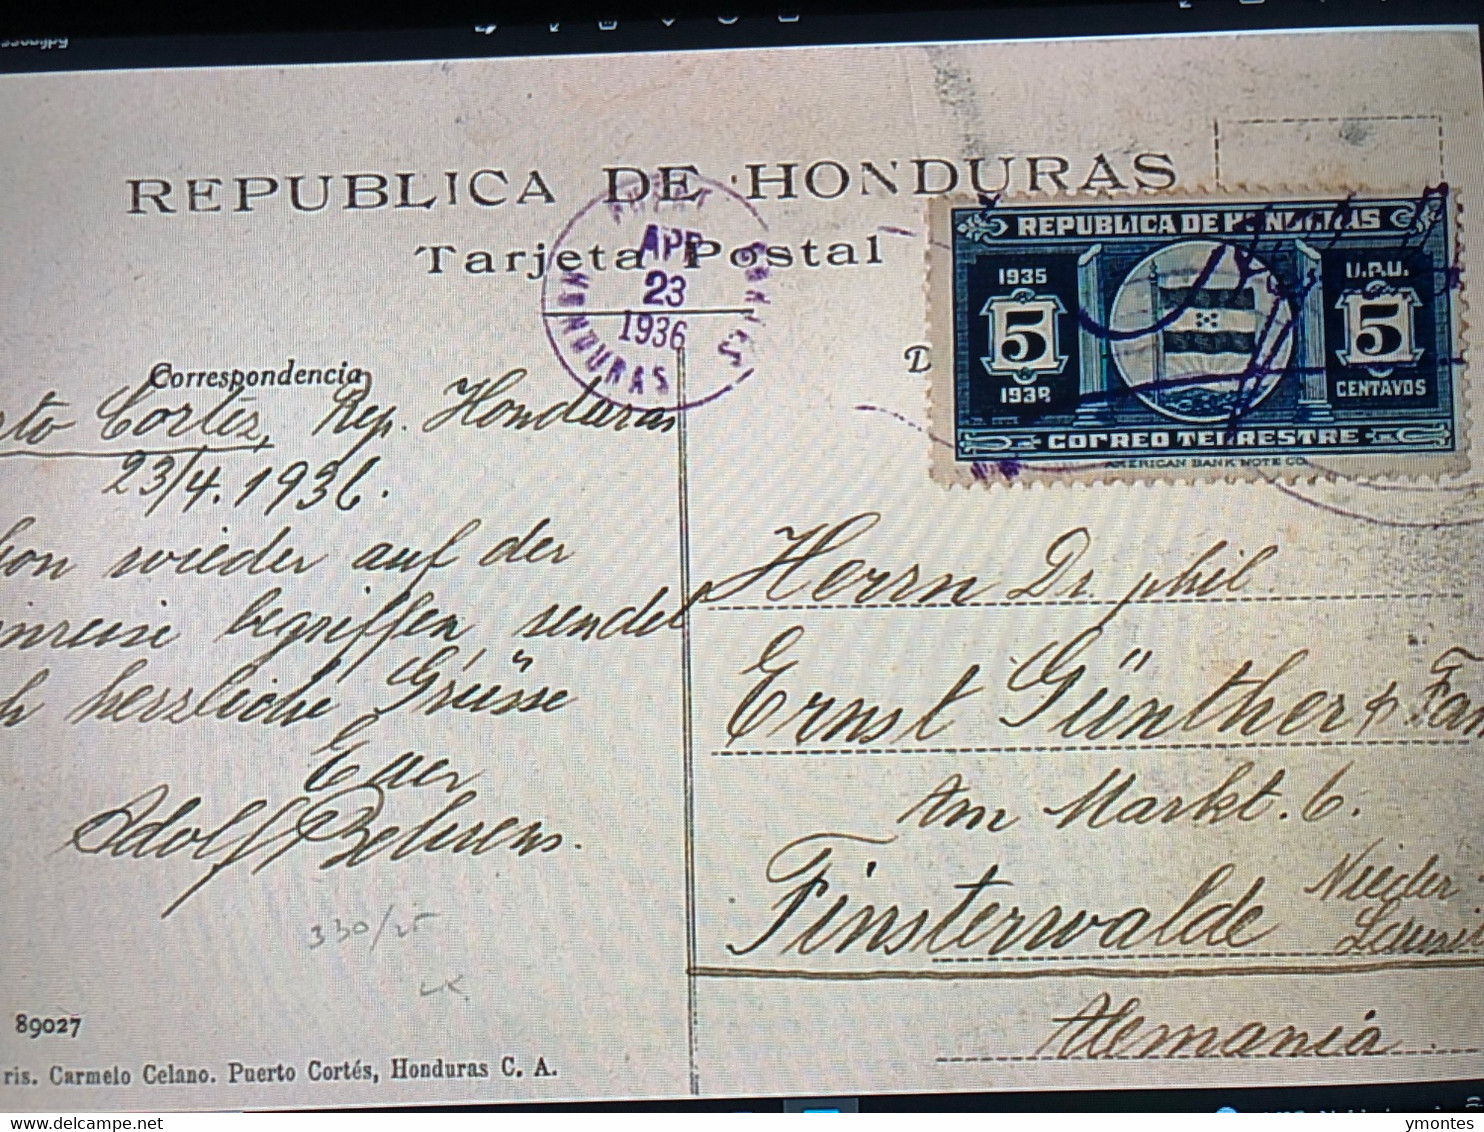 REPUBLICA DE HONDURAS
Tarjeta Postal
APR
23
1936
HONDURAS
REPUBLICA DE HONDURAS
1935
U.P.U.
5
5
1938
CENTAVOS
CORREO TERRESTRE
AMERICAN BANK NOTE CO.
Correspondencia
D
rto Cortéz, Rep. Honduras
23/4. 1936.
hon wieder auf der
inreise begriffen sendet
h herzliche Grüsse
Euer
Adolf Behrens.
Herrn Dr. phil.
Ernst Günther & Fam
Am Markt. 6.
Finsterwalde
Nieder
Alemania
330/25
89027
ris. Carmelo Celano. Puerto Cortés, Honduras C. A.
ymontes